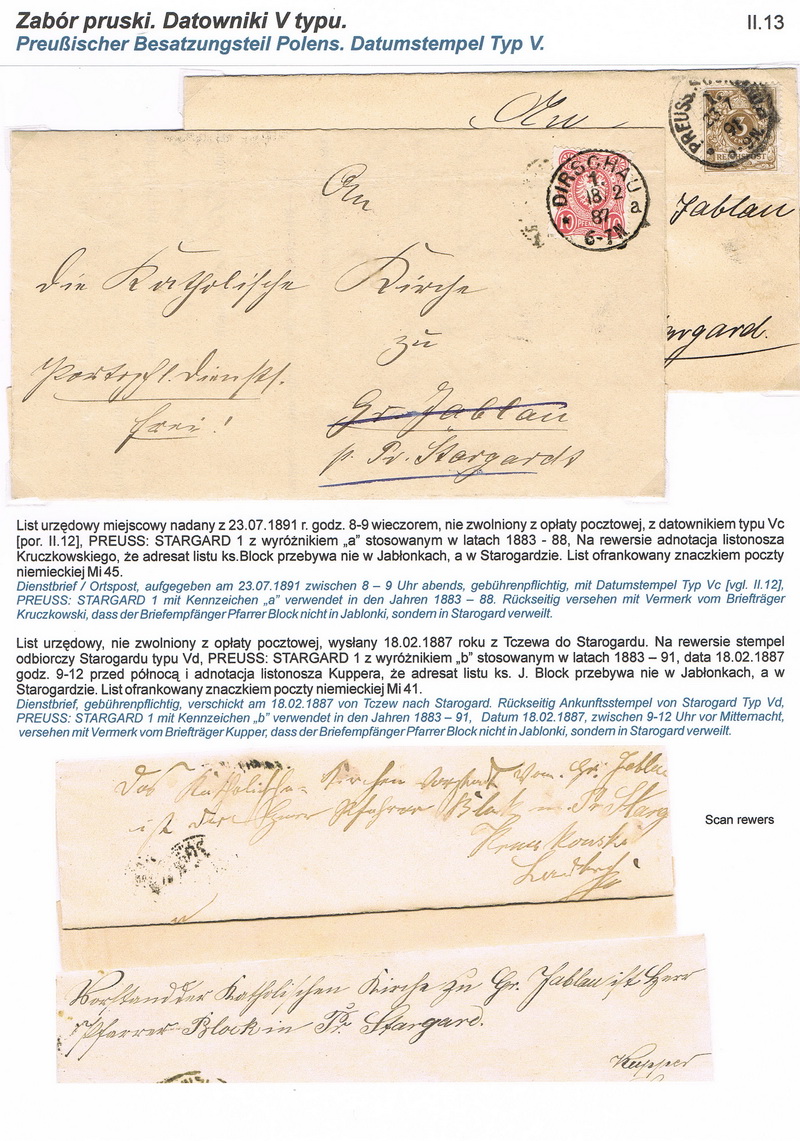 Zabór pruski. Datowniki V typu.
II.13
Preußischer Besatzungsteil Polens. Datumstempel Typ V.
An
PREUSS.
REICHSPOST
Jablau
An
DIRSCHAU
1.
18 2
87
a
6-7N
10 PFENNIG
die Katholische Kirche
zu
Portopfl. Diensts.
frei!
Gr. Jablau
p. Pr. Stargardt
argard.
List urzędowy miejscowy nadany z 23.07.1891 r. godz. 8-9 wieczorem, nie zwolniony z opłaty pocztowej, z datownikiem typu Vc
[por. II.12], PREUSS: STARGARD 1 z wyróżnikiem „a” stosowanym w latach 1883 - 88, Na rewersie adnotacja listonosza
Kruczkowskiego, że adresat listu ks.Block przebywa nie w Jabłonkach, a w Starogardzie. List ofrankowany znaczkiem poczty
niemieckiej Mi 45.
Dienstbrief / Ortspost, aufgegeben am 23.07.1891 zwischen 8 – 9 Uhr abends, gebührenpflichtig, mit Datumstempel Typ Vc [vgl. II.12],
PREUSS: STARGARD 1 mit Kennzeichen „a” verwendet in den Jahren 1883 – 88. Rückseitig versehen mit Vermerk vom Briefträger
Kruczkowski, dass der Briefempfänger Pfarrer Block nicht in Jablonki, sondern in Starogard verweilt.
List urzędowy, nie zwolniony z opłaty pocztowej, wysłany 18.02.1887 roku z Tczewa do Starogardu. Na rewersie stempel
odbiorczy Starogardu typu Vd, PREUSS: STARGARD 1 z wyróżnikiem „b” stosowanym w latach 1883 – 91, data 18.02.1887
godz. 9-12 przed północą i adnotacja listonosza Kuppera, że adresat listu ks. J. Block przebywa nie w Jabłonkach, a w
Starogardzie. List ofrankowany znaczkiem poczty niemieckiej Mi 41.
Dienstbrief, gebührenpflichtig, verschickt am 18.02.1887 von Tczew nach Starogard. Rückseitig Ankunftsstempel von Starogard Typ Vd,
PREUSS: STARGARD 1 mit Kennzeichen „b” verwendet in den Jahren 1883 – 91, Datum 18.02.1887, zwischen 9-12 Uhr vor Mitternacht,
versehen mit Vermerk vom Briefträger Kupper, dass der Briefempfänger Pfarrer Block nicht in Jablonki, sondern in Starogard verweilt.
Das Katholische Kirchen Vorstadt Vom. Gr. Jablau
ist der Herr Pfahrer Blok in Pr Starg
Scan rewers
Vorstand der Katholischen Kirche zu Gr. Jablau ist Herr
Pfarrer Block in Pr. Stargard.
Kupper